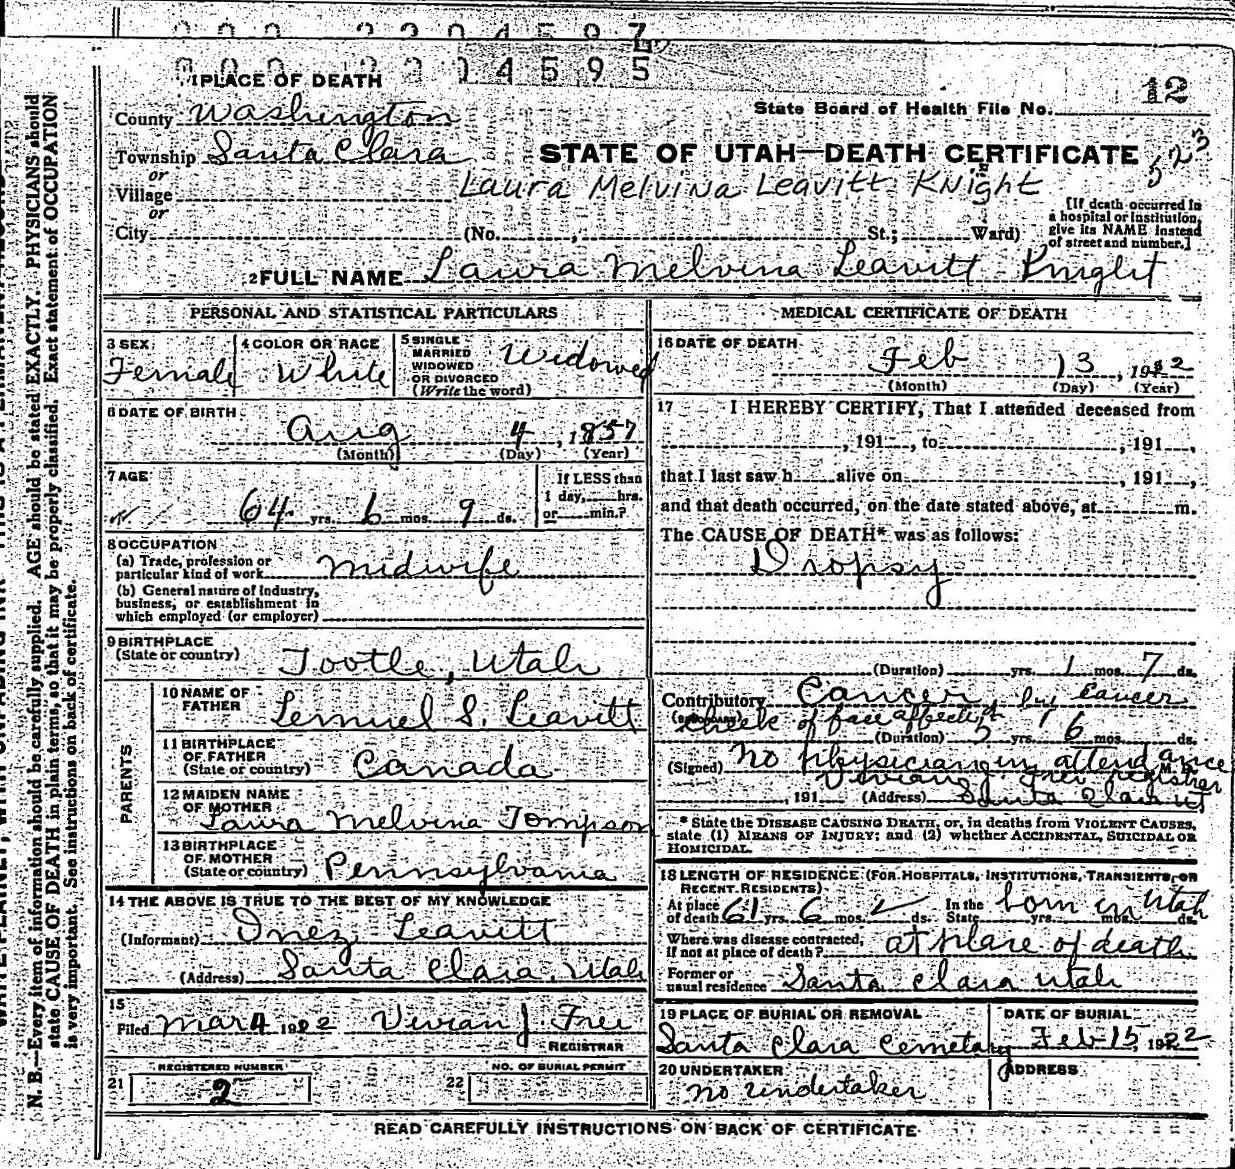 000 2204597
000 2204595
1 PLACE OF DEATH
12
County Washington
State Board of Health File No.
Township Santa Clara
STATE OF UTAH—DEATH CERTIFICATE
523
or
Village
Laura Melvina Leavitt Knight
or
City (No. , St.; Ward)
[If death occurred in a hospital or institution, give its NAME instead of street and number.]
2 FULL NAME Laura Melvina Leavitt Knight
PERSONAL AND STATISTICAL PARTICULARS
3 SEX Female
4 COLOR OR RACE White
5 SINGLE MARRIED WIDOWED OR DIVORCED (Write the word) Widowed
6 DATE OF BIRTH
Aug 4, 1857
(Month) (Day) (Year)
7 AGE
64 yrs. 6 mos. 9 ds.
If LESS than 1 day, hrs. or min.?
8 OCCUPATION
(a) Trade, profession or particular kind of work Midwife
(b) General nature of industry, business, or establishment in which employed (or employer)
9 BIRTHPLACE
(State or country) Tootle, Utah
PARENTS
10 NAME OF FATHER Lemuel S. Leavitt
11 BIRTHPLACE OF FATHER (State or country) Canada
12 MAIDEN NAME OF MOTHER Laura Melvina Tompson
13 BIRTHPLACE OF MOTHER (State or country) Pennsylvania
14 THE ABOVE IS TRUE TO THE BEST OF MY KNOWLEDGE
(Informant) Inez Leavitt
(Address) Santa Clara, Utah
15
Filed Mar 4 1922 Vivian J Frei
REGISTRAR
REGISTERED NUMBER
21 2
NO. OF BURIAL PERMIT
22
MEDICAL CERTIFICATE OF DEATH
16 DATE OF DEATH
Feb 13, 1922
(Month) (Day) (Year)
17 I HEREBY CERTIFY, That I attended deceased from
, 191 , to , 191 ,
that I last saw h alive on , 191 ,
and that death occurred, on the date stated above, at m.
The CAUSE OF DEATH* was as follows:
Dropsy
(Duration) yrs. 1 mos. 7 ds.
Contributory Cancer by Cancer
(SECONDARY) cheek of face
(Duration) 5 yrs. 6 mos. ds.
(Signed) No physician in attendance M. D.
Vivian J Frei registrar
, 191 (Address) Santa Clara Ut
* State the DISEASE CAUSING DEATH, or, in deaths from VIOLENT CAUSES, state (1) MEANS OF INJURY; and (2) whether ACCIDENTAL, SUICIDAL OR HOMICIDAL.
18 LENGTH OF RESIDENCE (FOR HOSPITALS, INSTITUTIONS, TRANSIENTS, OR RECENT RESIDENTS)
At place of death 61 yrs. 6 mos. 2 ds. In the State yrs. mos. ds. born in Utah
Where was disease contracted, if not at place of death? at place of death
Former or usual residence Santa Clara Utah
19 PLACE OF BURIAL OR REMOVAL
Santa Clara Cemetary
DATE OF BURIAL
Feb 15 1922
20 UNDERTAKER
No Undertaker
ADDRESS
READ CAREFULLY INSTRUCTIONS ON BACK OF CERTIFICATE
N. B.—Every item of information should be carefully supplied. AGE should be stated EXACTLY. PHYSICIANS should
state CAUSE OF DEATH in plain terms, so that it may be properly classified. Exact statement of OCCUPATION
is very important. See instructions on back of certificate.